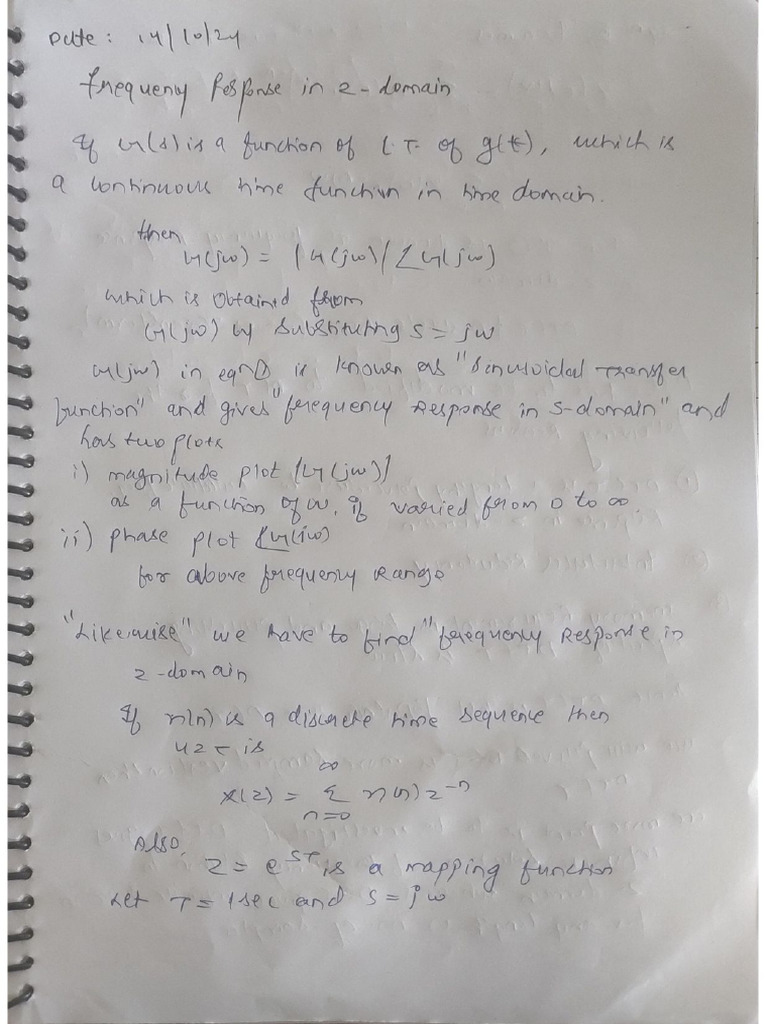 Date: 14/10/24
frequency Response in z-domain
If G(s) is a function of L.T. of g(t), which is
a continuous time function in time domain.
then
G(jω) = |G(jω)| ∠G(jω)
which is obtained from
G(jω) by substituting s = jω
G(jω) in eqn① is known as "sinusoidal Transfer
function" and gives "frequency Response in s-domain" and
has two plots
i) magnitude plot |G(jω)|
as a function of ω, if varied from 0 to ∞.
ii) phase plot ∠G(jω)
for above frequency Range
"Likewise" we have to find "frequency Response in
z-domain
If x(n) is a discrete time sequence then
UZT is
∞
X(z) = Σ x(n) z⁻ⁿ
n=0
Also,
z = e^sT is a mapping function
Let T = 1sec and s = jω